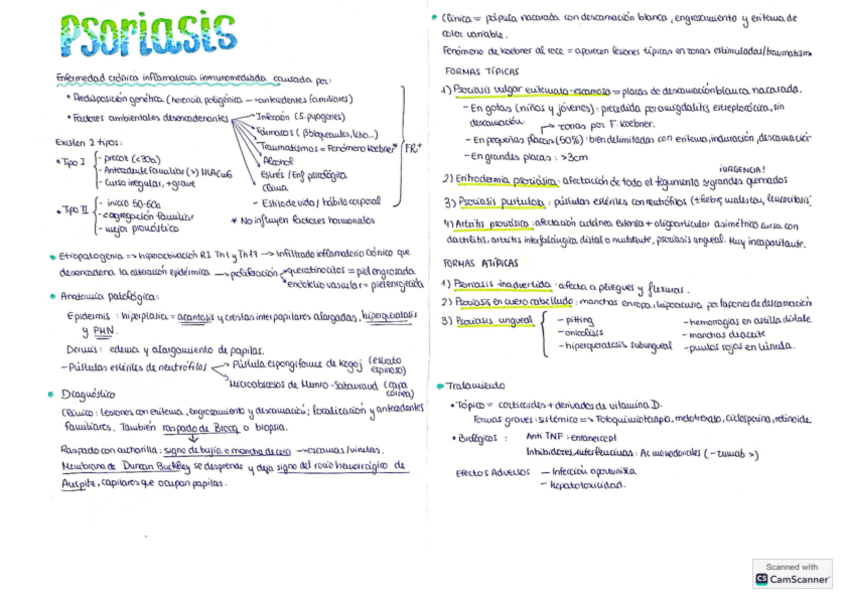 Psoriasis
Enfermedad crónica inflamatoria inmunomediada causada por:
• Predisposición genética (herencia poligénica → antecedentes familiares)
• Factores ambientales desencadenantes
Infección (S. pyogenes)
Fármacos (βbloqueantes, litio...)
Traumatismos = Fenómeno Koebner*
Alcohol
Estrés / Enf psicológica
Clima
- Estilo de vida / hábito corporal
FR+
* No influyen factores hormonales
Existen 2 tipos:
• Tipo I
- precoz (<30a)
- Antecedente familiar (>) HLACw6
- Curso irregular, + grave
• Tipo II
- inicio 50-60a
- agregación familiar
- mejor pronóstico
• Etiopatogenia => hiperactivación RI Th1 y Th17 → Infiltrado inflamatorio crónico que
desencadena la alteración epidérmica → proliferación
queratinocitos = piel engrosada
endotelio vascular = piel enrojecida
• Anatomía patológica:
Epidermis: hiperplasia = acantosis y crestas interpapilares alargadas, hiperqueratosis
y PHN.
Dermis: edema y alargamiento de papilas.
- Pústulas estériles de neutrófilos
Pústula espongiforme de Kogoj (estrato
espinoso)
Microabscesos de Munro-Sabouraud (capa
córnea)
• Diagnóstico
Clínico: lesiones con eritema, engrosamiento y descamación; localización y antecedentes
familiares. También raspado de Brocq o biopsia.
Raspado con cucharilla: signo de bujía o mancha de cera → escamas/virutas.
Membrana de Duncan Buckley se desprende y deja signo del rocío hemorrágico de
Auspitz, capilares que ocupan papilas.
• Clínica = pápula nacarada con descamación blanca, engrosamiento y eritema de
color variable.
Fenómeno de Koebner al roce = aparecen lesiones típicas en zonas estimuladas/traumatism
FORMAS TÍPICAS
1) Psoriasis vulgar eritemato-escamosa = placas de descamación blanca, nacarada.
- En gotas (niños y jóvenes): precedida por amigdalitis estreptocócica, sin
descamación
→ zonas por F. Koebner.
- En pequeñas placas (50%): bien delimitadas con eritema, induración, descamación
- En grandes placas: >3cm
¡URGENCIA!
2) Eritrodermia psoriásica: afectación de todo el tegumento → grandes quemados
3) Psoriasis pustulosa: pústulas estériles con neutrófilos (+ fiebre, malestar, leucocitosis)
4) Artritis psoriásica: afectación cutánea extensa + oligoarticular asimétrica cursa con
dactilitis, artritis interfalángica, distal o mutilante, psoriasis ungueal. Muy incapacitante.
FORMAS ATÍPICAS
1) Psoriasis invertida: afecta a pliegues y flexuras.
2) Psoriasis en cuero cabelludo: manchas en ropa, hipoacusia por tapones de descamación
3) Psoriasis ungueal
- pitting
- onicolisis
- hiperqueratosis subungueal
- hemorragias en astilla distale
- manchas de aceite
- puntos rojos en lúnula.
• Tratamiento
• Tópico = corticoides + derivados de vitamina D.
Formas graves: sistémico => Fotoquimioterapia, metotrexato, ciclosporina, retinoide
• Biológicos:
Anti TNF: etanercept
Inhibidores interleucinas: Ac monoclonales (-zumab >)
EFECTOS ADVERSOS
- Infección oportunista
- Hepatotoxicidad.
Scanned with
CS CamScanner